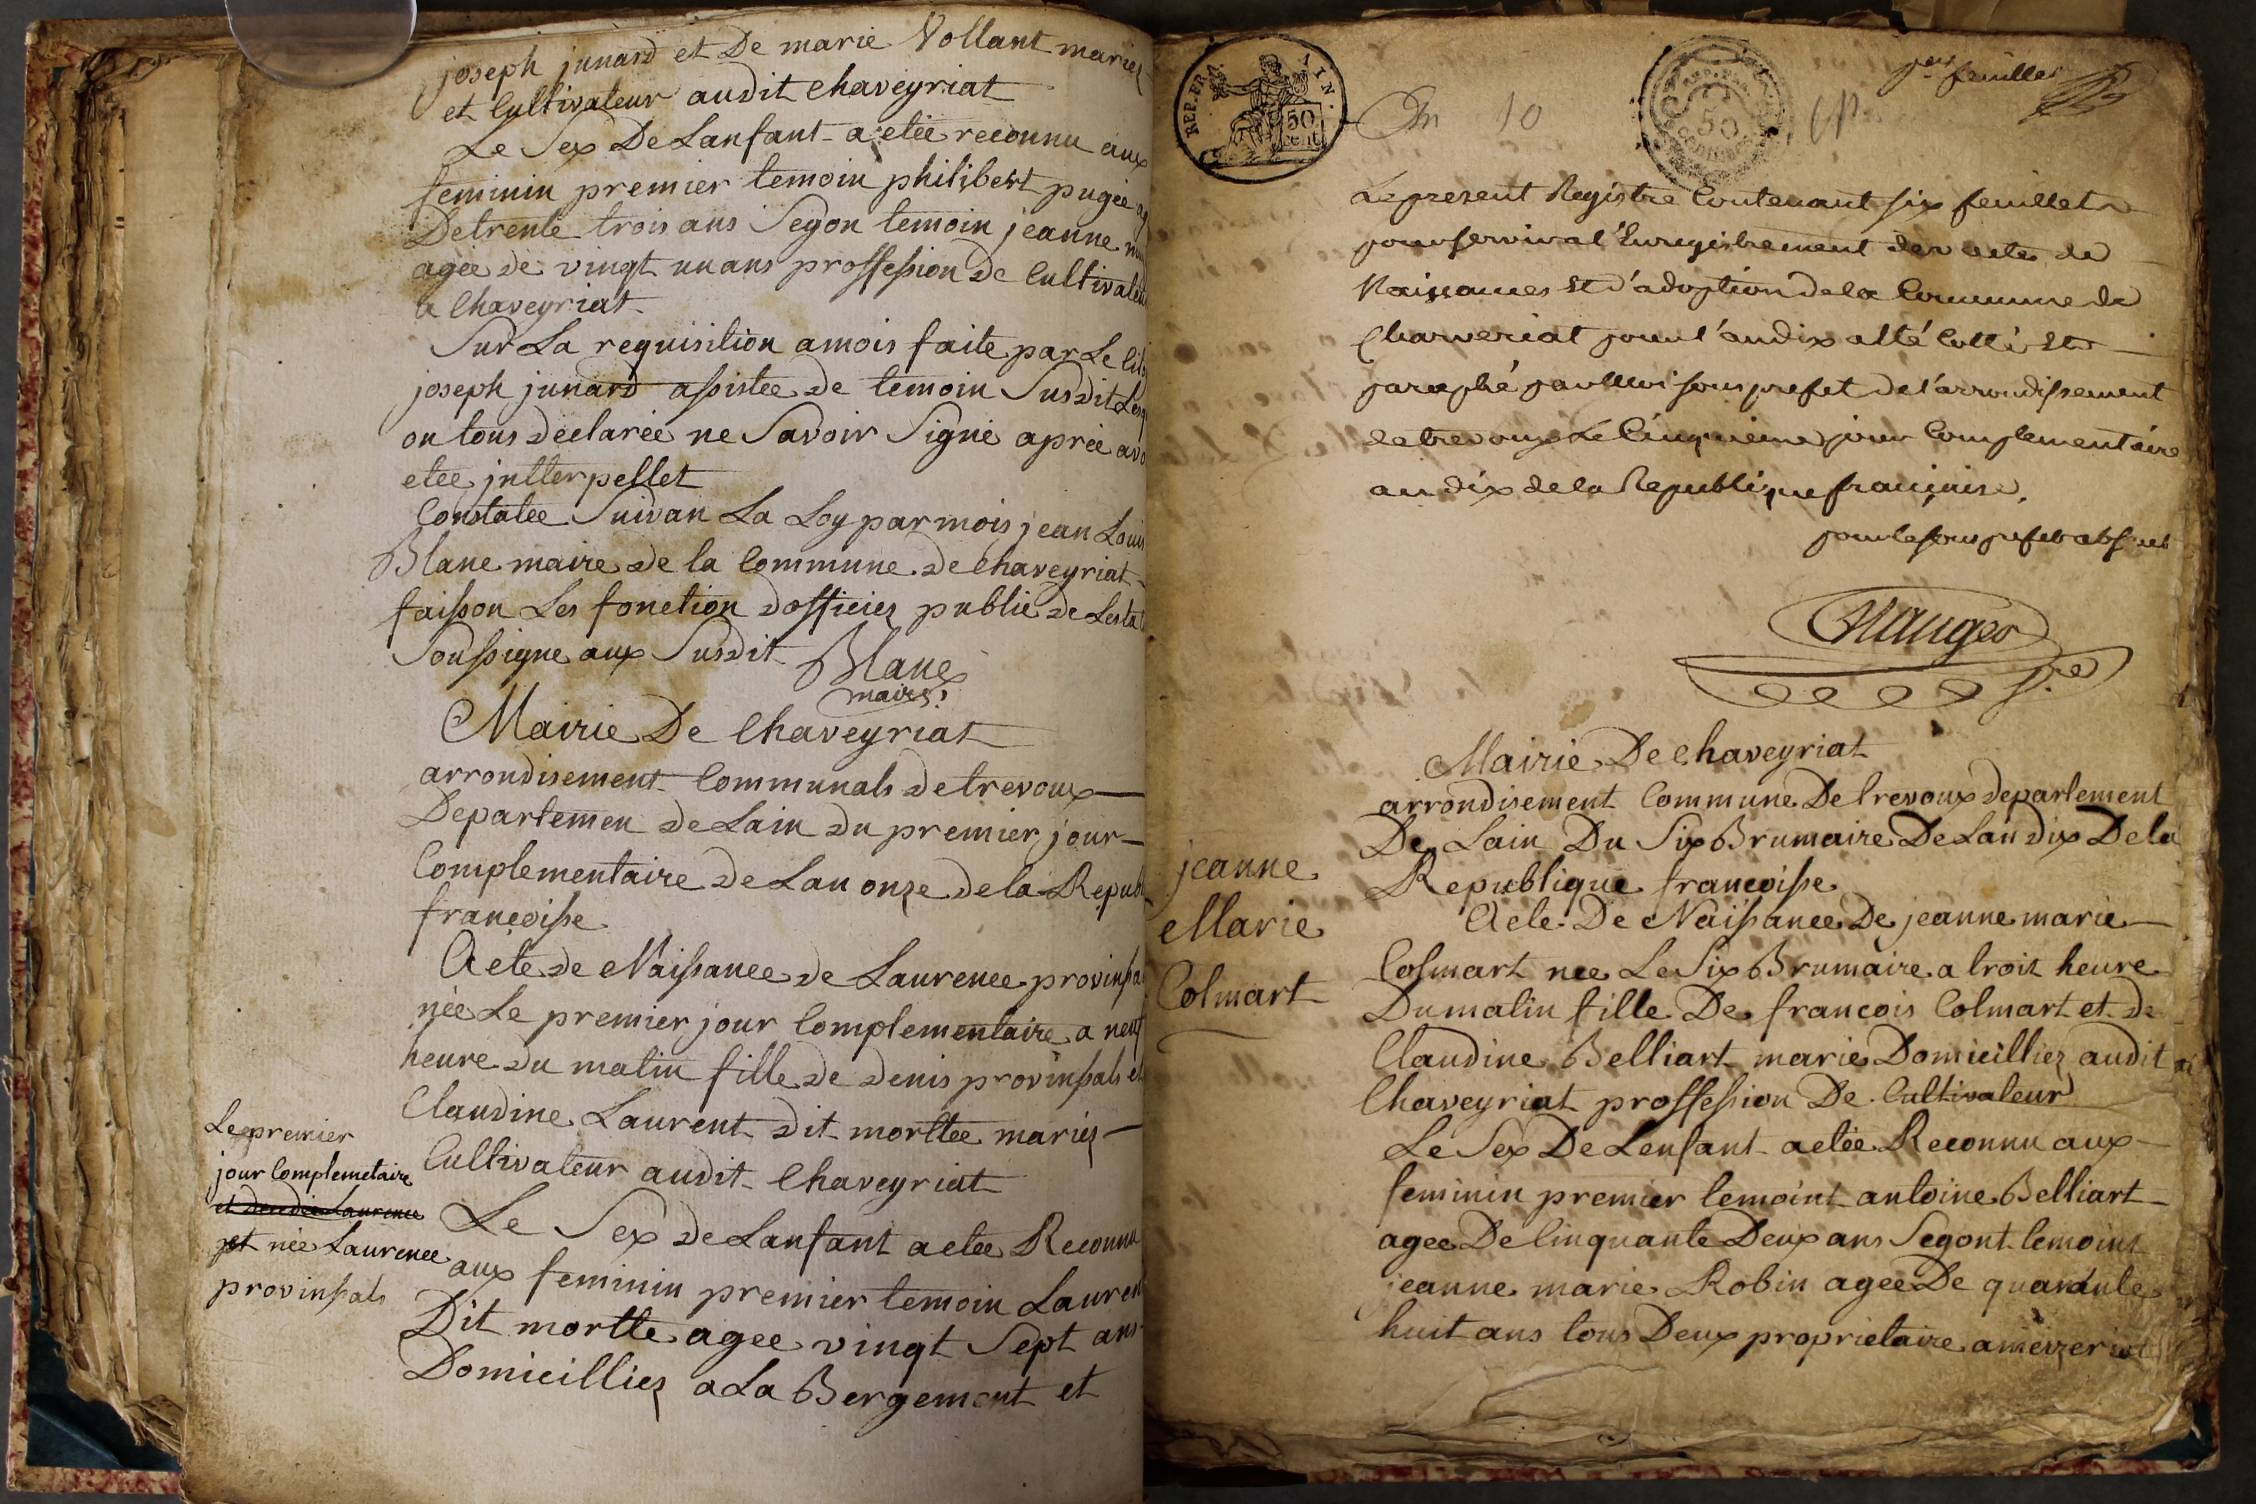 joseph junard et De marie Vollant mariez
et Cultivateur audit Chaveyriat
Le Sex De Lanfant a etée reconnu aux
feminin premier temoin philibert pugée
De trente trois ans Segon temoin jeanne
agée de vingt un ans proffession de Cultivateur
a Chaveyriat
Sur La requisition a mois faite par Le
joseph junard assistée de temoin Susdit
on tous declarée ne Savoir Signé aprée
etée jntterpellet
Constatée Suivan La Loy par mois jean Louis
Blanc maire de la Commune de Chaveyriat
faisson Les fonction dofficiez public de
Soussigne aux Susdit Blanc
maire
Mairie De Chaveyriat
arrondisement Communals de trevoux
Departemen de Lain du premier jour
Complementaire de Lan onze de la Republ
françoisse
Acte de Naissance de Laurence
née Le premier jour Complementaire a neuf
heure du matin fille de denis provinssals et
Claudine Laurent dit morttée mariez
Cultivateur audit Chaveyriat
Le Sex de Lanfant a etée Reconnu
aux feminin premier temoin Laurent
Dit mortte agee vingt Sept ans
Domicilliez a La Bergement et
Le premier
jour Complemetaire
et née Laurence
provinssals
REP. FRA. AIN.
50
cent
An 10
50
feuillet
Le present Registre Contenant six feuillets
pour servir a l'Enregistrement des actes de
Naissances Et d'adoption de la Commune de
Chaveriat pour l'an dix a été Cotté Et
paraphé par Nous sous prefet de l'arrondissement
de trevoux Le Cinquieme jour Complementaire
an dix de la Republique française,
pour le sous prefet absent
Mairie De Chaveyriat
arrondisement Commune De trevoux departement
De Lain Du Six Brumaire De Lan dix De la
Republique françoisse
Acte De Naissance De jeanne marie
Colmart nee Le Six Brumaire a troit heure
Du matin fille De françois Colmart et de
Claudine Belliart marie Domicilliez audit
Chaveyriat proffession De Cultivateur
Le Sex De Lenfant a etée Reconnu aux
feminin premier temoint antoine Belliart
agee De Cinquante Deux ans Segont temoint
jeanne marie Robin agee De quarante
huit ans tous Deux proprietaire a mezeriat
jeanne
Marie
Colmart